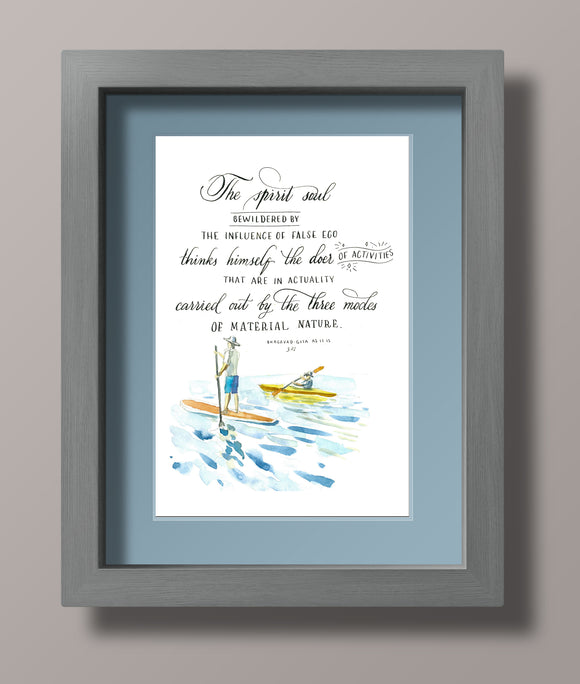 The spirit soul
BEWILDERED BY
THE INFLUENCE OF FALSE EGO
thinks himself the doer OF ACTIVITIES
THAT ARE IN ACTUALITY
carried out by the three modes
OF MATERIAL NATURE.
BHAGAVAD-GITA AS IT IS
3.27